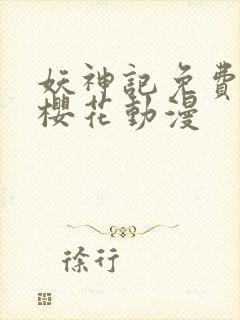 妖神記免費
櫻花動漫
徐行